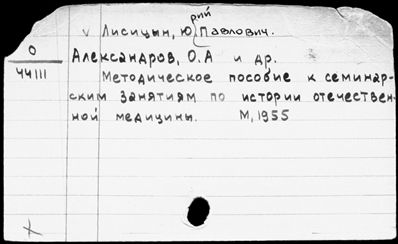 рий
v Лисицын, Ю. Павлович.
О
44111
Александров, О.А и др.
Методическое пособие к семинар-
ским занятиям по истории отечествен-
ной медицины. М, 1955
+